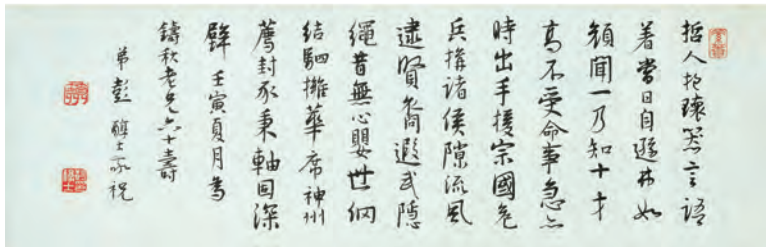 哲人抱瑰器言語
着當日自遜弗如
顏聞一乃知十才
高不受命事急亦
時出手援宗國危
兵搆諸侯隙流風
逮賢裔遐武隱
繩昔無心嬰世網
結駟擁華席神州
薦封豕秉軸回深
壬寅夏月為
鑄秋老兄六十壽
弟彭醇士敬祝